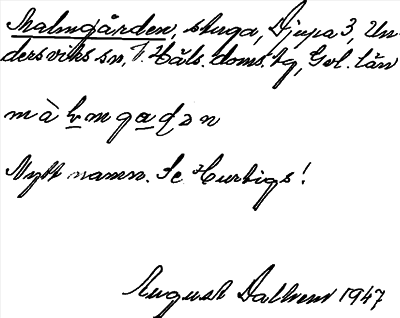 Malmgården, stuga, Djupa 3, Un-
dersviks sn, V. Häls. doms. tg, Gvl. län
màlmgaḍən
Nytt namn. Se Hurtigs!
August Dallner 1947